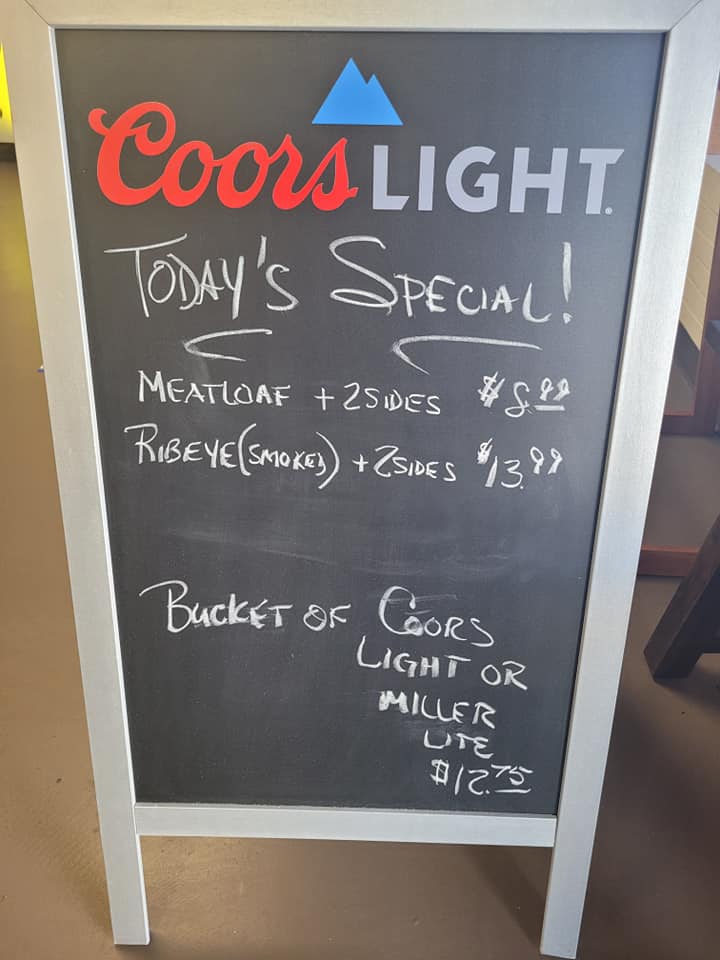 Coors LIGHT.
TODAY'S SPECIAL!
MEATLOAF + 2 SIDES $8.99
RIBEYE (SMOKED) + 2 SIDES $13.99
BUCKET OF COORS
LIGHT OR
MILLER
LITE
$12.75